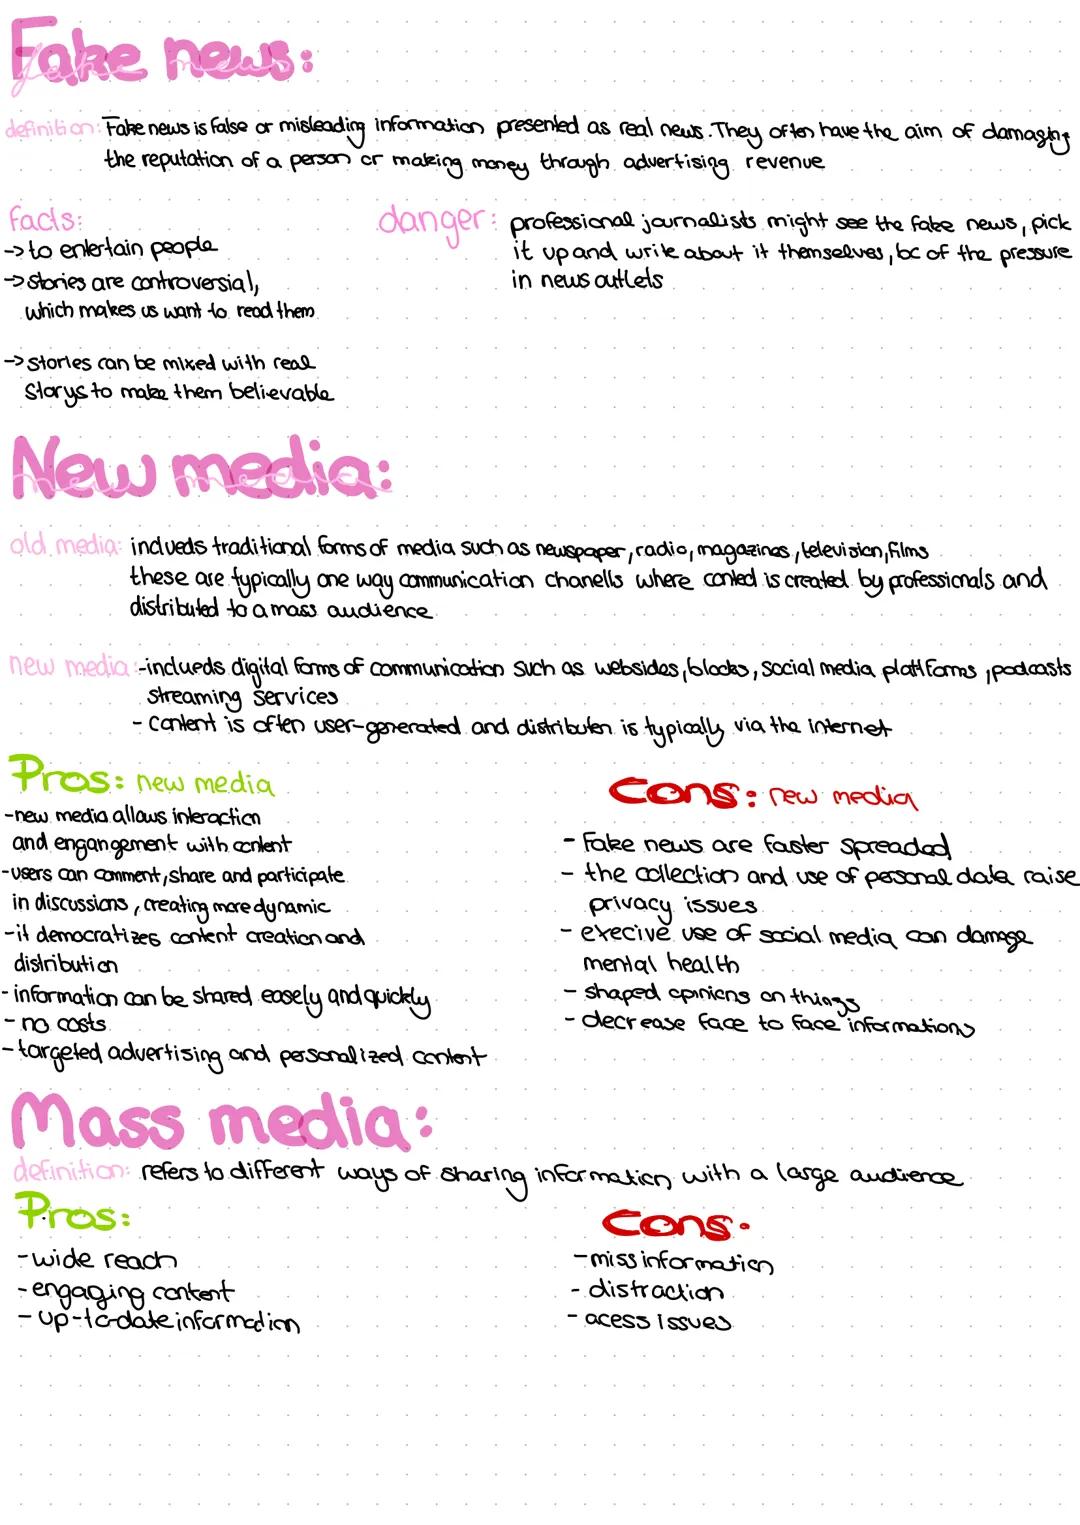 Fake news:
definition: Fake news is false or misleading information presented as real news. They often have the aim of damaging
the reputation of a person or making money through advertising revenue
facts:
-> to entertain people
-> stories are controversial,
which makes us want to read them
-> stories can be mixed with real
storys to make them believable
danger: professional journalists might see the fake news, pick
it up and write about it themselves, bc of the pressure
in news outlets
New media:
old media: inclueds traditional forms of media such as newspaper, radio, magazines, television, films
these are typically one way communication chanells where conted is created by professionals and
distributed to a mass audience
new media: -inclueds digital forms of communication such as websides, blocks, social media platforms, podcasts
streaming services
- content is often user-generated and distributen is typically via the internet
Pros: new media
-new media allows interaction
and engangement with content
-users can comment, share and participate
in discussions, creating more dynamic
-it democratizes content creation and
distribution
- information can be shared easely and quickly
- no costs
- targeted advertising and personalized content
Cons: new media
- Fake news are faster spreaded
- the collection and use of personal data raise
privacy issues
- execive use of social media can damage
mental health
- shaped opinions on things
- decrease face to face informations
Mass media:
definition: refers to different ways of sharing information with a large audience
Pros:
- wide reach
- engaging content
- up-to-date information
Cons:
- miss information
- distraction
- acess issues